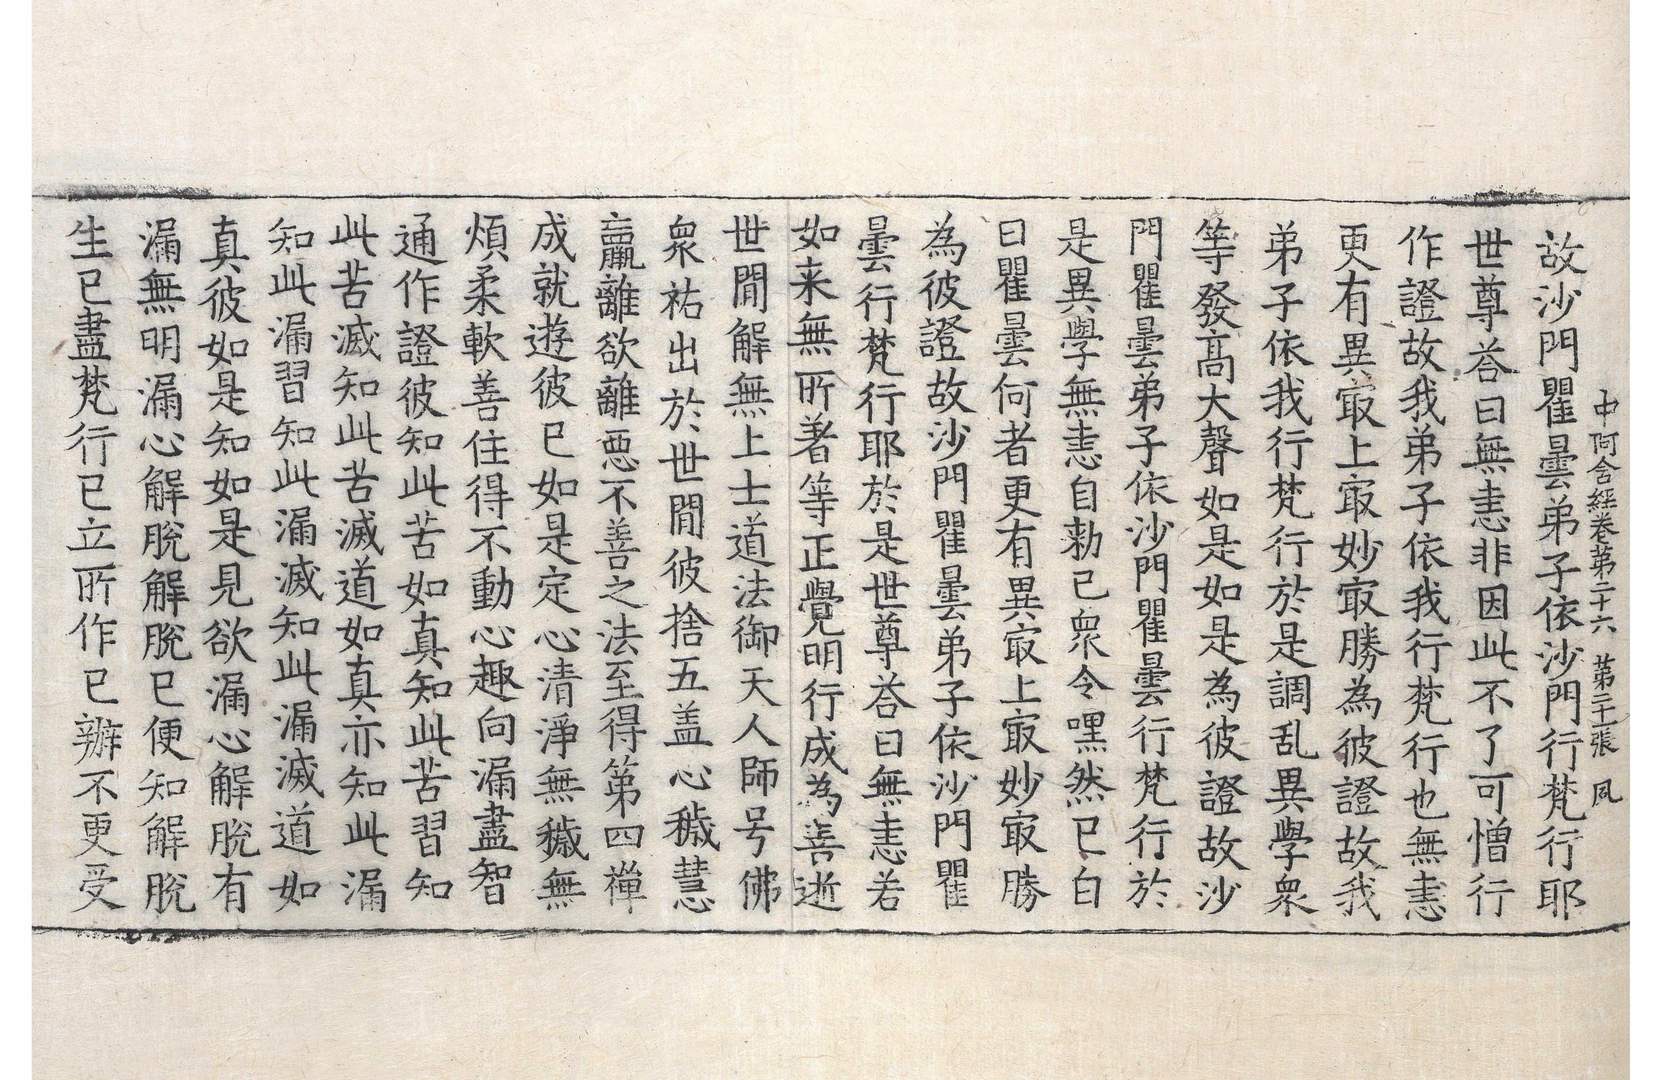 中阿含經卷第二十六　第二十一張　風
故沙門瞿曇弟子依沙門行梵行耶
世尊荅曰無恚非因此不了可憎行
作證故我弟子依我行梵行也無恚
更有異㝡上㝡妙㝡勝為彼證故我
弟子依我行梵行於是調乱異學衆
等發髙大聲如是如是為彼證故沙
門瞿曇弟子依沙門瞿曇行梵行於
是異學無恚自勑己衆令嘿然已白
曰瞿曇何者更有異㝡上㝡妙㝡勝
為彼證故沙門瞿曇弟子依沙門瞿
曇行梵行耶於是世尊荅曰無恚若
如来無所著等正覺明行成為善逝
世間解無上士道法御天人師号佛
衆祐出於世間彼捨五盖心穢慧
羸離欲離惡不善之法至得第四禪
成就遊彼已如是定心清淨無穢無
煩柔軟善住得不動心趣向漏盡智
通作證彼知此苦如真知此苦習知
此苦滅知此苦滅道如真亦知此漏
知此漏習知此漏滅知此漏滅道如
真彼如是知如是見欲漏心解脫有
漏無明漏心解脫解脫已便知解脫
生已盡梵行已立所作已辦不更受